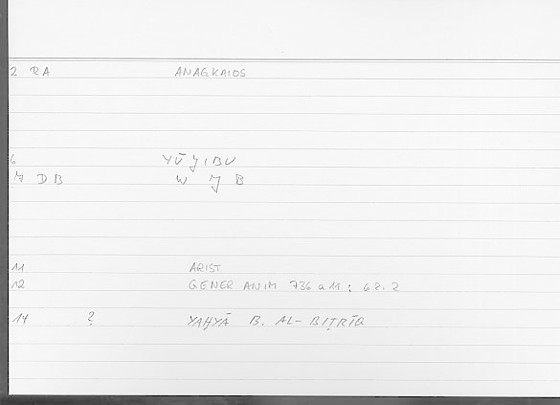 2 RA ANAGKAIOS
6 YŪJIBU
7 DB W J B
11 ARIST
12 GENER ANIM 736 a 11 : 62.2
14 ? YAḤYĀ B. AL-BIṬRĪQ